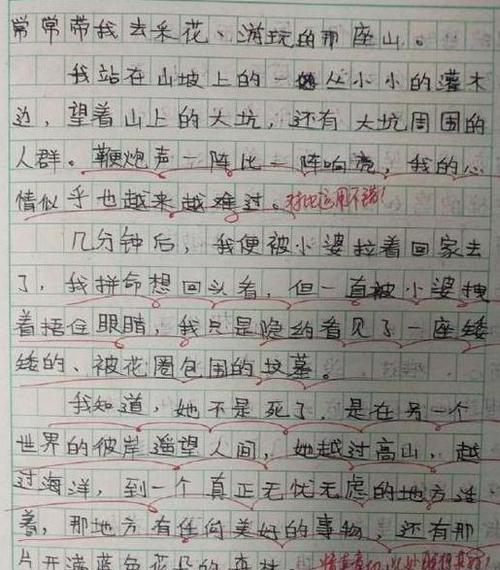 常常带我去采花、游玩的那座山。
我站在山坡上的一丛小小的灌木
边，望着山上的大坑，还有大坑周围的
人群。鞭炮声一阵比一阵响亮，我的心
情似乎也越来越难过。对比运用不错！
几分钟后，我便被小婆拉着回家去
了，我拼命想回头看，但一直被小婆拽
着捂住眼睛，我只是隐约看见了一座矮
矮的、被花圈包围的坟墓。
我知道，她不是死了，是在另一个
世界的彼岸遥望人间，她越过高山，越
过海洋，到一个真正无忧无虑的地方活
着，那地方有任何美好的事物，还有那
片开满蓝色花朵的森林